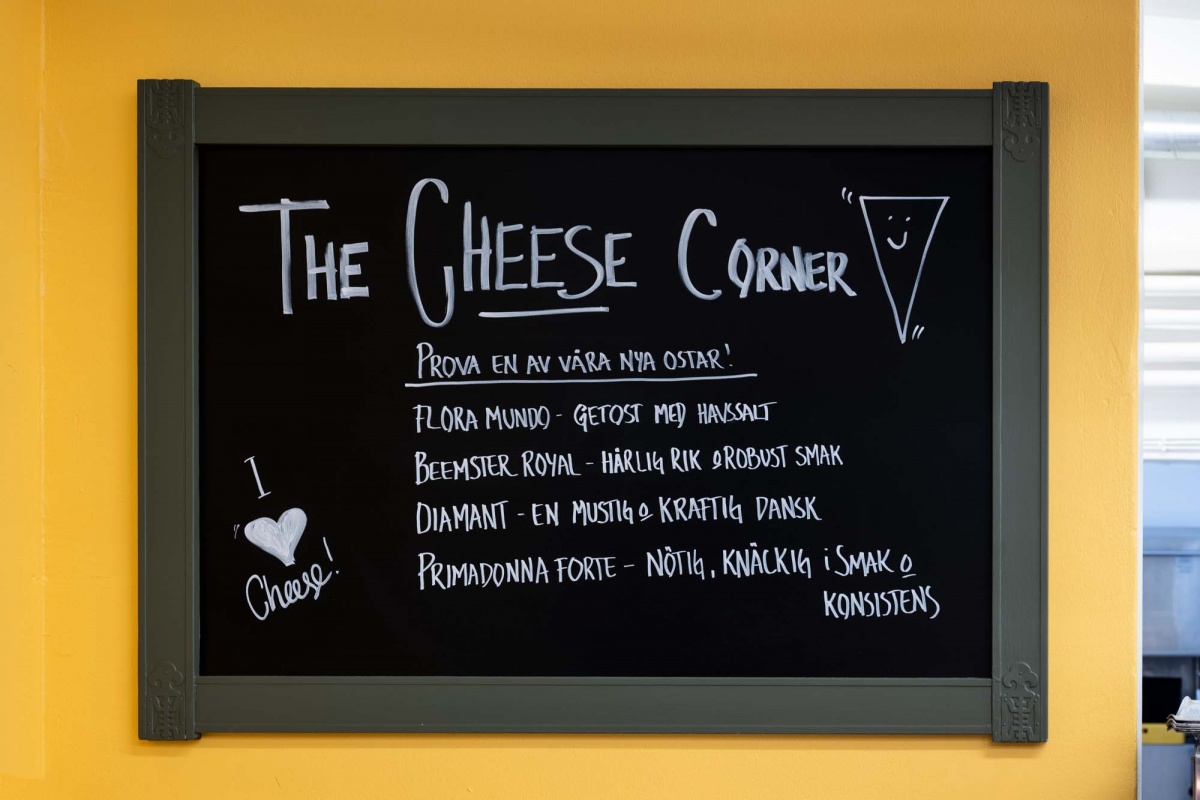 THE CHEESE CORNER
PROVA EN AV VÅRA NYA OSTAR!
FLORA MUNDO - GETOST MED HAVSSALT
BEEMSTER ROYAL - HÄRLIG RIK O ROBUST SMAK
DIAMANT - EN MUSTIG O KRAFTIG DANSK
PRIMADONNA FORTE - NÖTIG, KNÄCKIG i SMAK O
KONSISTENS
I
Cheese!